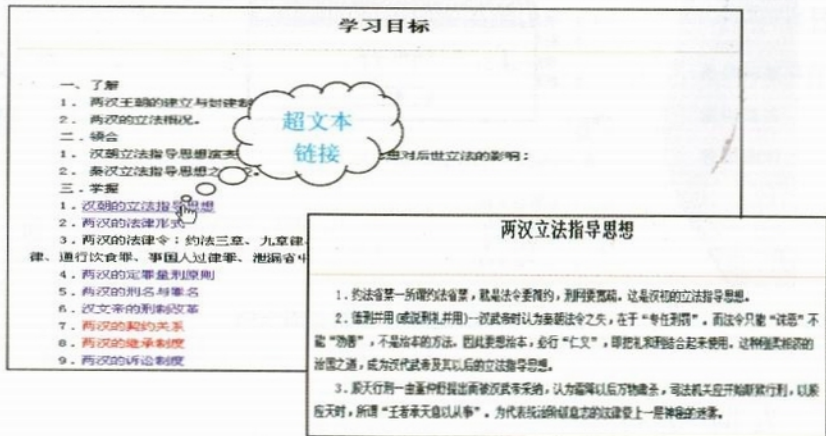 学习目标
一、了解
1. 两汉王朝的建立与封建制
2. 两汉的立法概况。
二、领会
1. 汉朝立法指导思想演变 想对后世立法的影响;
2. 秦汉立法指导思想之
三、掌握
1. 汉朝的立法指导思想
2. 两汉的法律形式
3. 两汉的法律令:约法三章、九章律、
律、通行饮食罪、事国人过律罪、泄漏省中
4. 两汉的定罪量刑原则
5. 两汉的刑名与罪名
6. 汉文帝的刑制改革
7. 两汉的契约关系
8. 两汉的继承制度
9. 两汉的诉讼制度
超文本
链接
两汉立法指导思想
1. 约法省禁—所谓约法省禁,就是法令要简约,刑网要宽疏。这是汉初的立法指导思想。
2. 德刑并用(或说刑礼并用)—汉武帝时认为秦朝法令之失,在于“专任刑罚”。而法令只能“诛恶”不
能“劝善”,不是治本的方法。因此要想治本,必行“仁义”,即把礼和刑结合起来使用。这种刚柔相济的
治国之道,成为汉代武帝及其以后的立法指导思想。
3. 顺天行刑—由董仲舒提出而被汉武帝采纳,认为霜降以后万物肃杀,司法机关应开始断狱行刑,以顺
应天时,所谓“王者承天意以从事”。为代表统治阶级意志的法律蒙上一层神秘的迷雾。